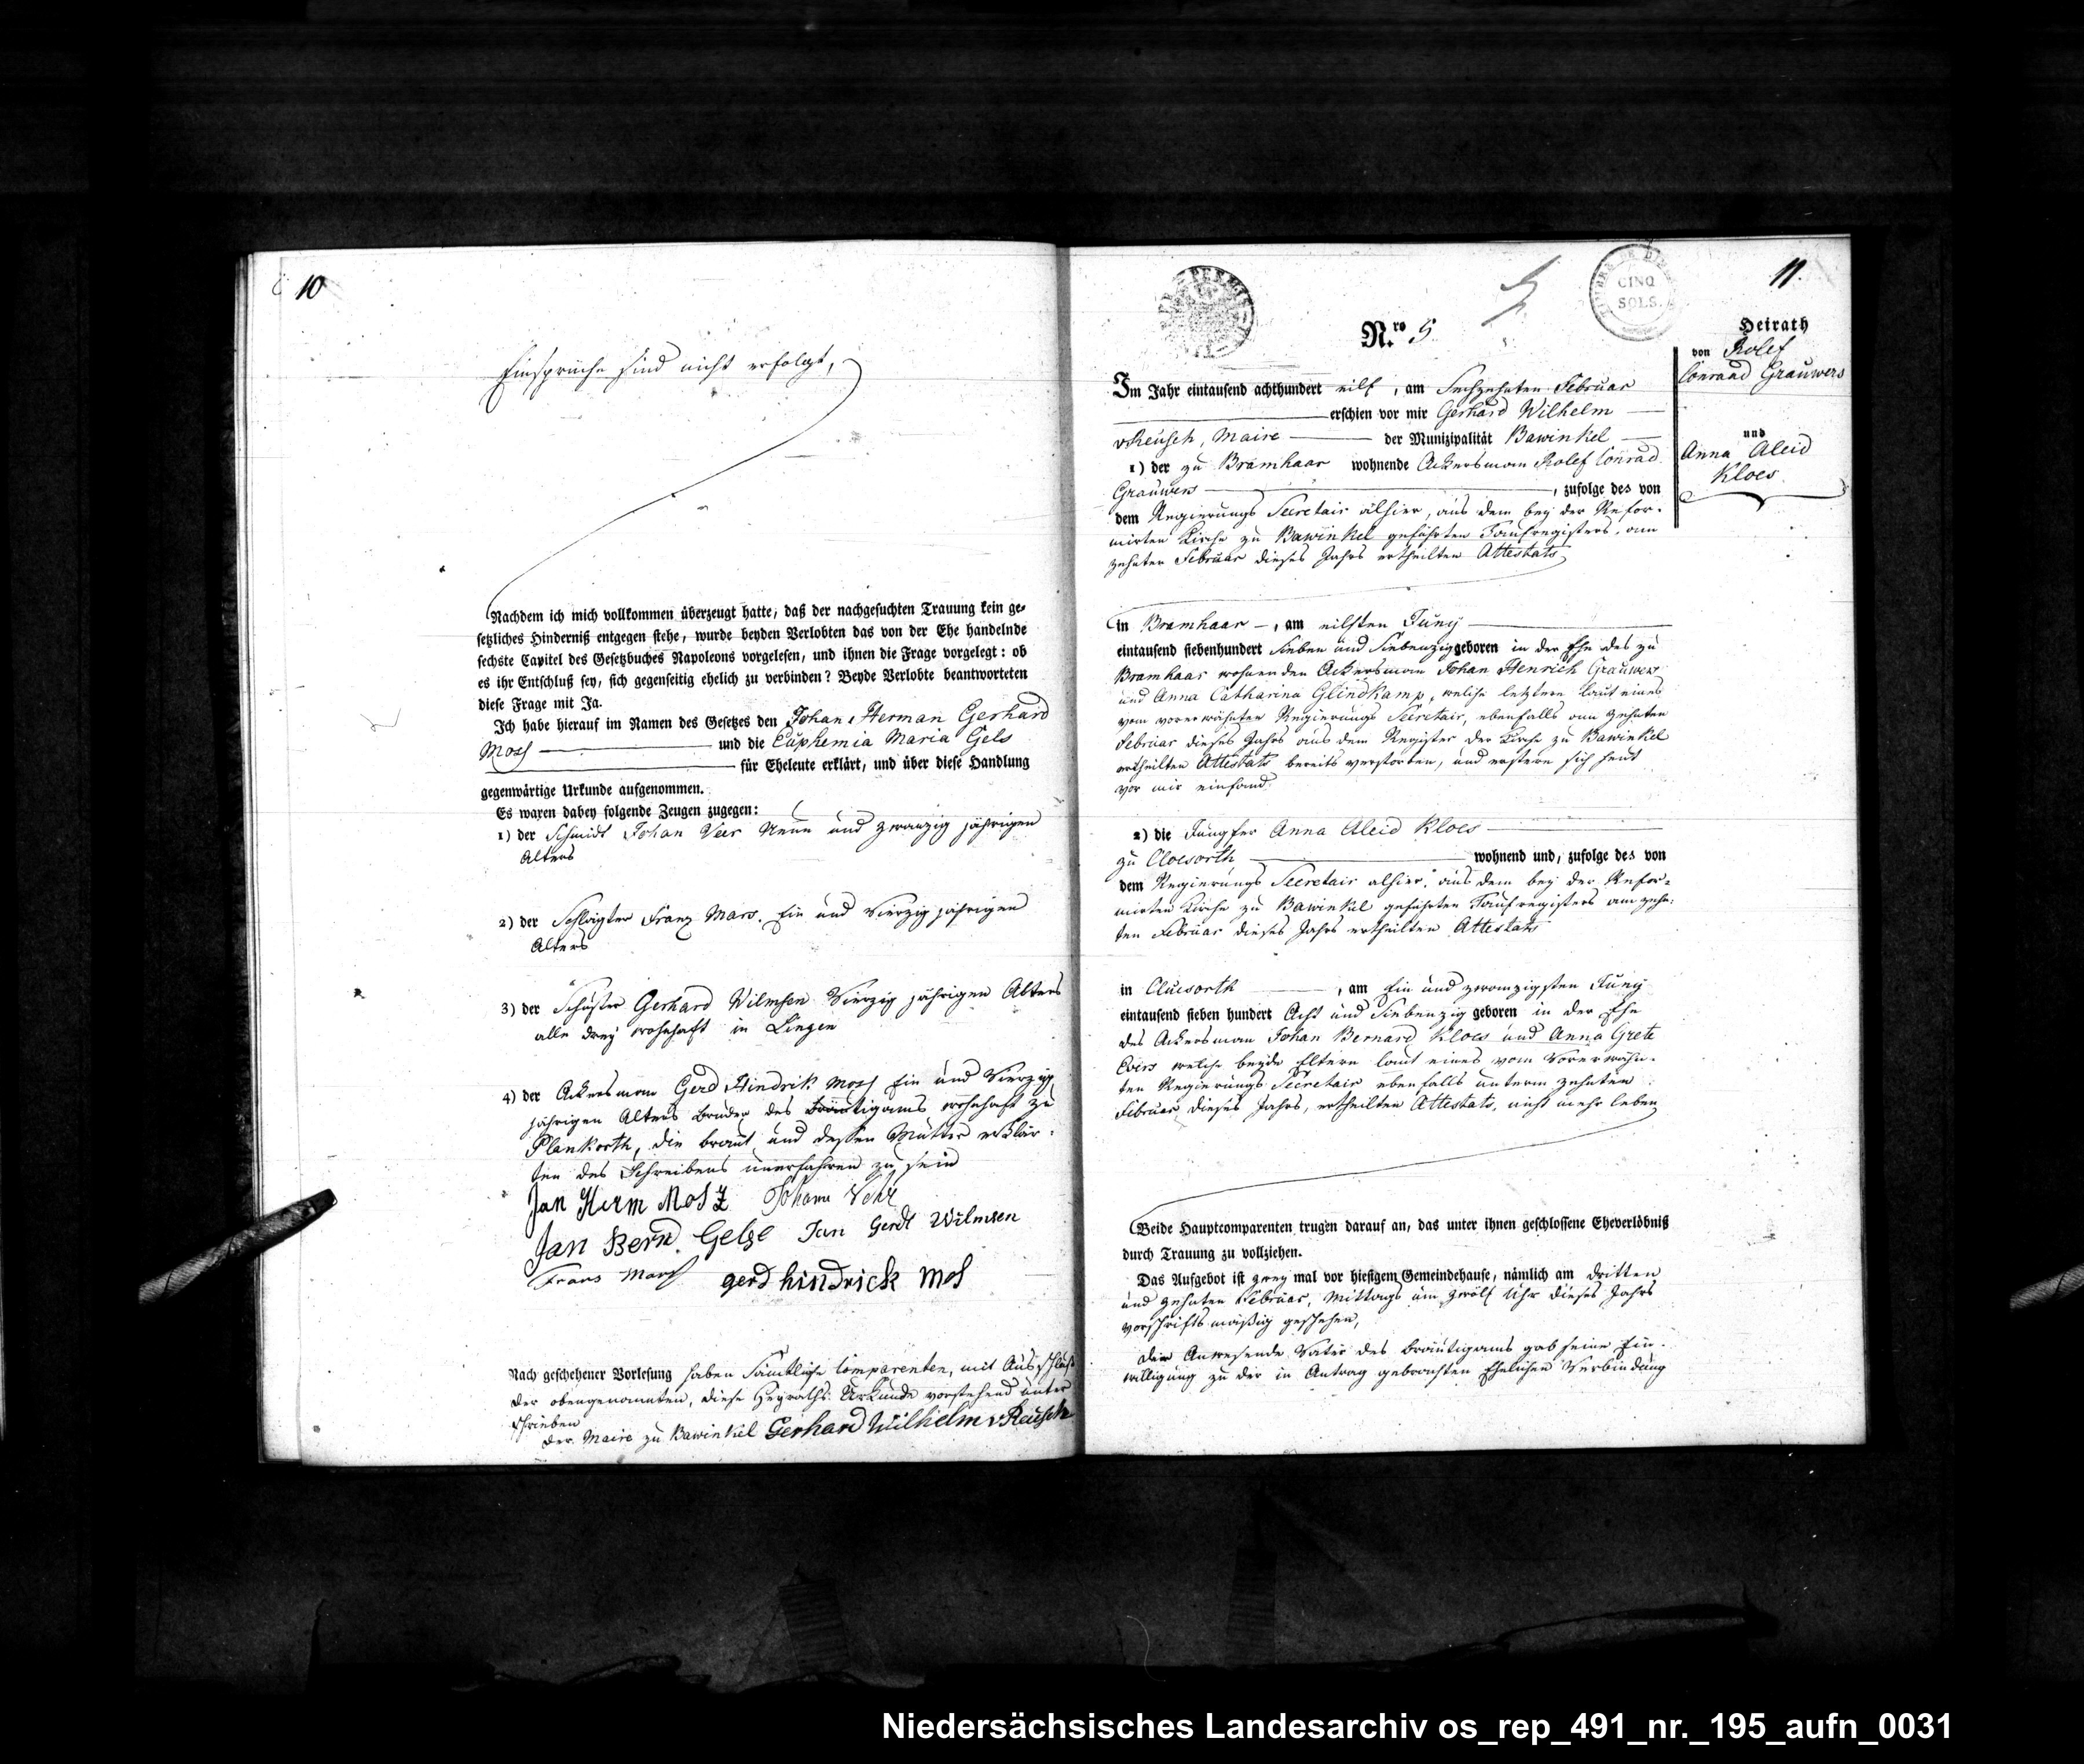 10
Einsprüche sind nicht erfolgt,
Nachdem ich mich vollkommen überzeugt hatte, daß der nachgesuchten Trauung kein ge-
setzliches Hinderniß entgegen stehe, wurde beyden Verlobten das von der Ehe handelnde
sechste Capitel des Gesetzbuches Napoleons vorgelesen, und ihnen die Frage vorgelegt: ob
es ihr Entschluß sey, sich gegenseitig ehelich zu verbinden? Beyde Verlobte beantworteten
diese Frage mit Ja.
Ich habe hierauf im Namen des Gesetzes den Johan Herman Gerhard
Moss und die Euphemia Maria Gels
für Eheleute erklärt, und über diese Handlung
gegenwärtige Urkunde aufgenommen.
Es waren dabey folgende Zeugen zugegen:
1) der Schmidt Johan Veer Neun und zwanzig jährigen
Alters
2) der Schlagter Franz Mars. Ein und Vierzig jährigen
Alters
3) der Schuster Gerhard Wilmsen Vierzig jährigen Alters
alle drey wohnhaft in Lingen
4) der Ackersman Gerd Hindrik Moss Ein und Vierzig
jährigen Alters Bruder des Bräutigams wohnhaft zu
Plankorth, die braut und dessen Mutter erklär-
ten des Schreibens unerfahren zu sein
Jan Herm Mosz Johann Vehr
Jan Bern. Gelse Jan Gerdt Wilmsen
Frans Mars gerd hindrick Mos
Nach geschehener Vorlesung haben Sämtliche Comparenten, mit Ausschluß
der obengenannten, diese Heyraths-Urkunde vorstehend unter
schrieben
der Maire zu Bawinkel Gerhard Wilhelm vReusch
11.
CINQ
SOLS.
Nro 5
Heirath
von Rolef
Conraad Grauwers
und
Anna Aleid
Kloes
Im Jahr eintausend achthundert eilf, am Sechzehnten Februar
erschien vor mir Gerhard Wilhelm
vReusch, Maire der Munizipalität Bawinkel
1) der zu Bramhaar wohnende Ackersman Rolef Conrad
Grauwers, zufolge des von
dem Regierungs Secretair alhier, aus dem bey der Refor-
mirten Kirche zu Bawinkel geführten Taufregisters, am
zehnten Februar dieses Jahrs ertheilten Attestats
in Bramhaar, am eilften Juny
eintausend siebenhundert Sieben und Siebenzig geboren in der Ehe des zu
Bramhaar wohnenden Ackersman Johan Henrich Grauwers
und Anna Catharina Glindkamp, welche letztere laut eines
vom vorerwähnten Regierungs Secretair, ebenfalls am zehnten
Februar dieses Jahrs aus dem Register der Kirche zu Bawinkel
ertheilten Attestats bereits verstorben, und erstere sich heut
vor mir einfand
2) die Jungfer Anna Aleid Kloes
zu Cloesorth wohnend und, zufolge des von
dem Regierungs Secretair alhier, aus dem bey der Refor-
mirten Kirche zu Bawinkel geführten Taufregisters am zehn-
ten Februar dieses Jahrs ertheilten Attestats
in Cluesorth, am Ein und zwanzigsten Juny
eintausend sieben hundert Acht und Siebenzig geboren in der Ehe
des Ackersman Johan Bernard Kloes und Anna Grete
Evers welche beyde Eltern laut eines vom Vorerwähn-
ten Regierungs Secretair ebenfalls unterm zehnten
Februar dieses Jahrs, ertheilten Attestats, nicht mehr leben
Beide Hauptcomparenten trugen darauf an, das unter ihnen geschlossene Eheverlöbniß
durch Trauung zu vollziehen.
Das Aufgebot ist zwey mal vor hiesigem Gemeindehause, nämlich am dritten
und zehnten Februar, Mittags um zwölf Uhr dieses Jahrs
vorschriftsmäßig geschehen,
Der Anwesende Vater des Bräutigams gab seine Ein-
willigung zu der in Antrag gebrachten Ehelichen Verbindung
Niedersächsisches Landesarchiv os_rep_491_nr._195_aufn_0031